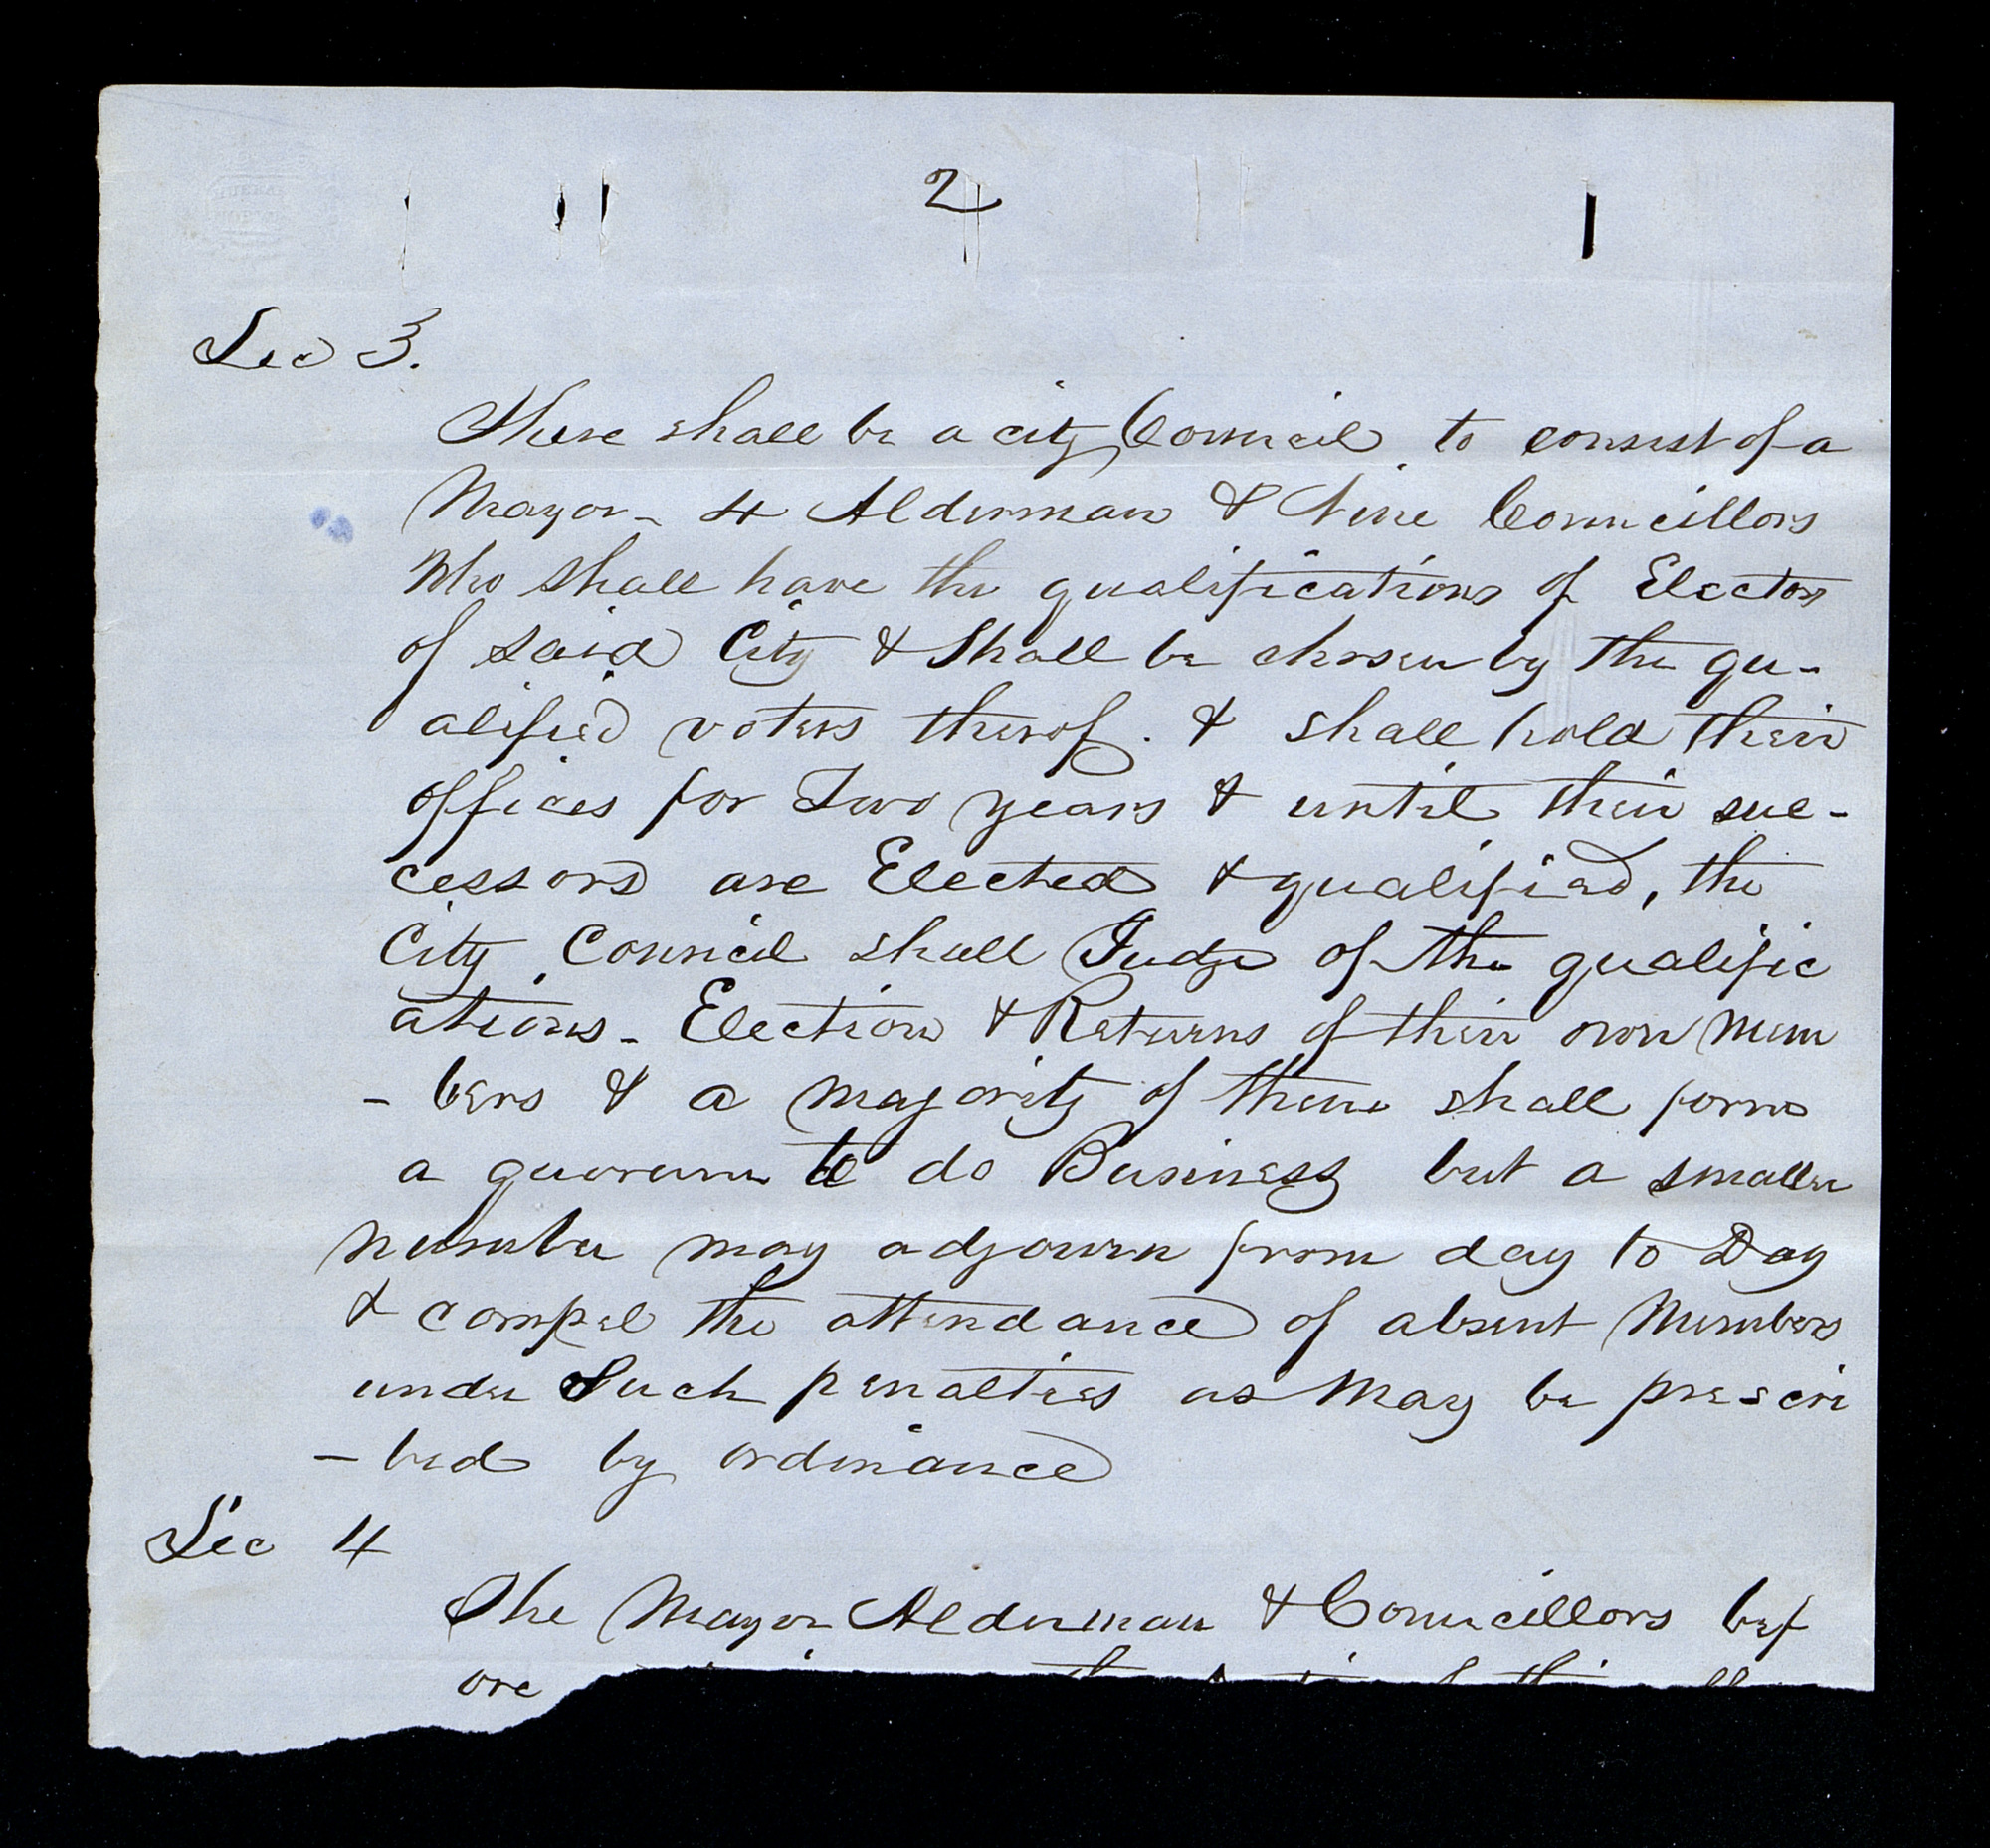 2
Sec 3.
There shall be a city Council to consist of a
Mayor - 4 Alderman & Nine Councillors
Who shall have the qualifications of Electors
of said City & Shall be chosen by the qu-
alified voters therof. & shall hold their
offices for Two years & until their suc-
cessors are Elected & qualified, the
City Council shall Judge of the qualific
ations - Election & Returns of their own Mem
- bers & a majority of them shall form
a quorum to do Business but a smaller
number may adjourn from day to Day
& compel the attendance of absent Members
under Such penalties as May be prescri
- bed by ordinance
Sec 4
The Mayor Alderman & Councillors bef
ore